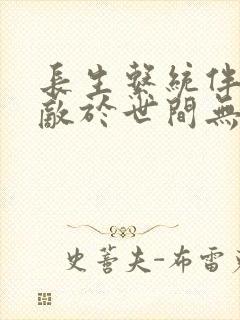 長生繫統伴
敵於世間無
史蒈夫-布雷